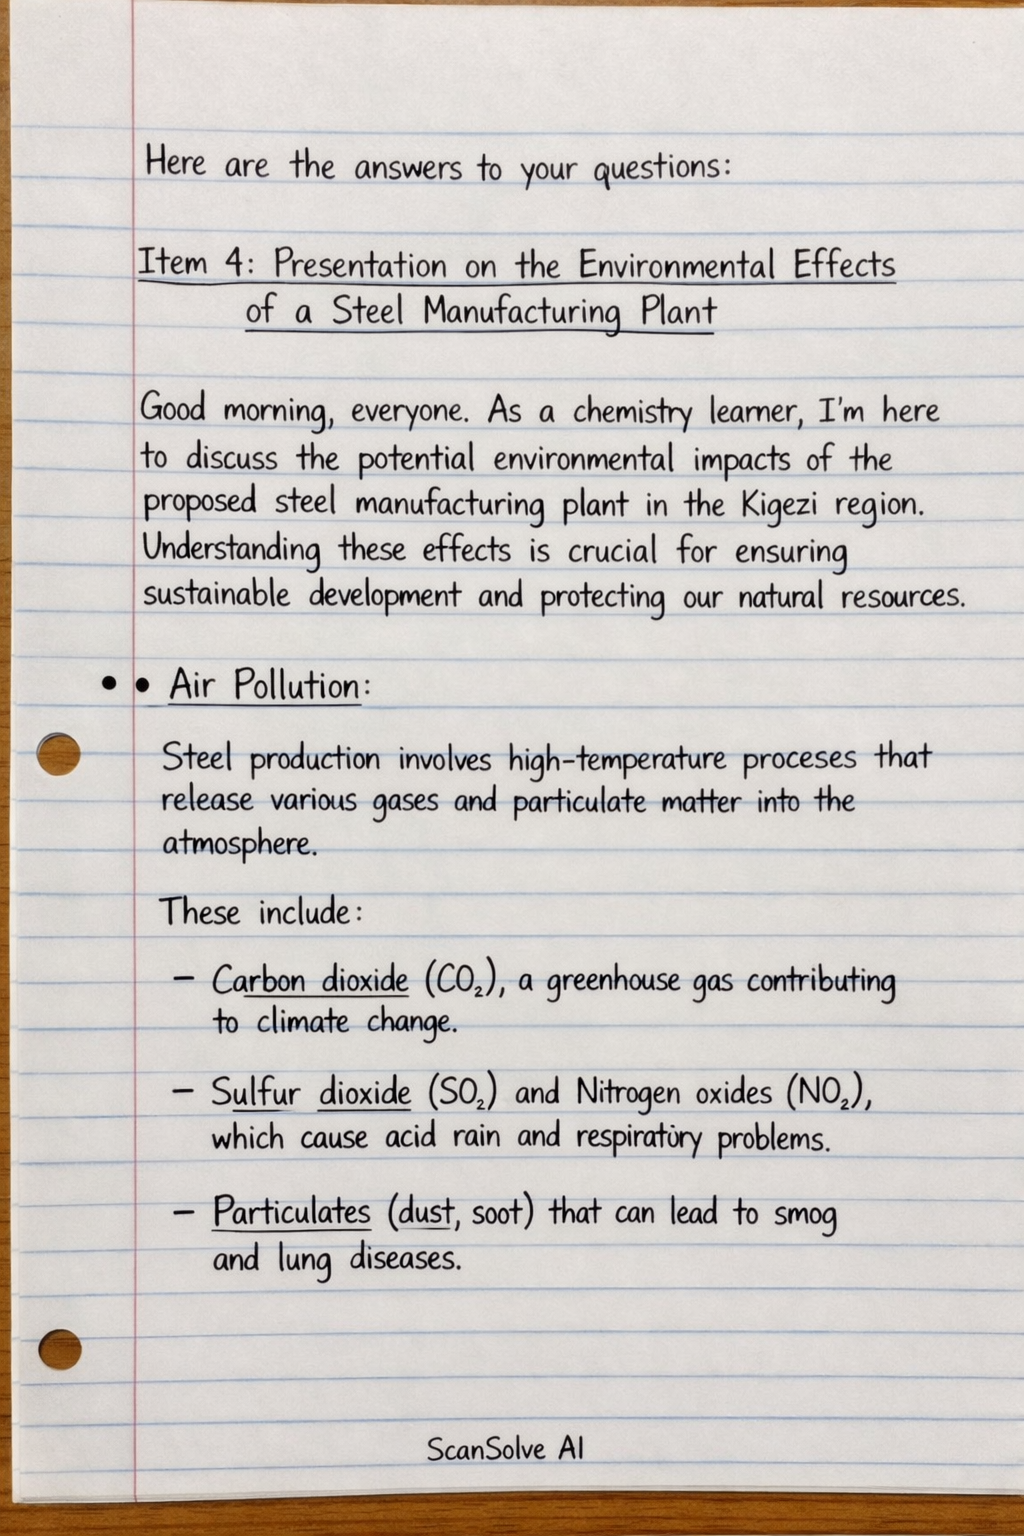 Here are the answers to your questions:
Item 4: Presentation on the Environmental Effects
of a Steel Manufacturing Plant
Good morning, everyone. As a chemistry learner, I'm here
to discuss the potential environmental impacts of the
proposed steel manufacturing plant in the Kigezi region.
Understanding these effects is crucial for ensuring
sustainable development and protecting our natural resources.
• • Air Pollution:
Steel production involves high-temperature proceses that
release various gases and particulate matter into the
atmosphere.
These include:
– Carbon dioxide (CO₂), a greenhouse gas contributing
to climate change.
– Sulfur dioxide (SO₂) and Nitrogen oxides (NO₂),
which cause acid rain and respiratory problems.
– Particulates (dust, soot) that can lead to smog
and lung diseases.
ScanSolve AI